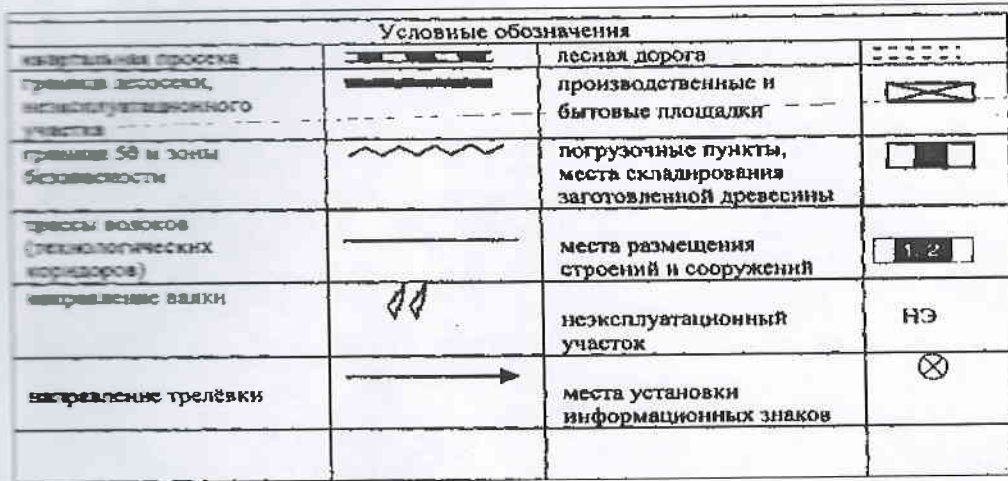 Условные обозначения
квартальная просека
лесная дорога
граница лесосеки,
неэксплуатационного
участка
производственные и
бытовые площадки
граница 50 м зоны
безопасности
погрузочные пункты,
места складирования
заготовленной древесины
трассы волоков
(технологических
коридоров)
места размещения
строений и сооружений
1, 2
направление валки
неэксплуатационный
участок
НЭ
направление трелёвки
места установки
информационных знаков